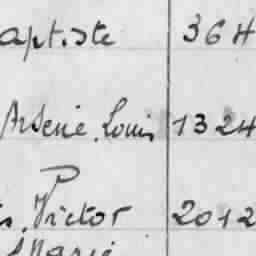 aptiste 364
Arsene Louis 1324
s, Victor 2012
Marie